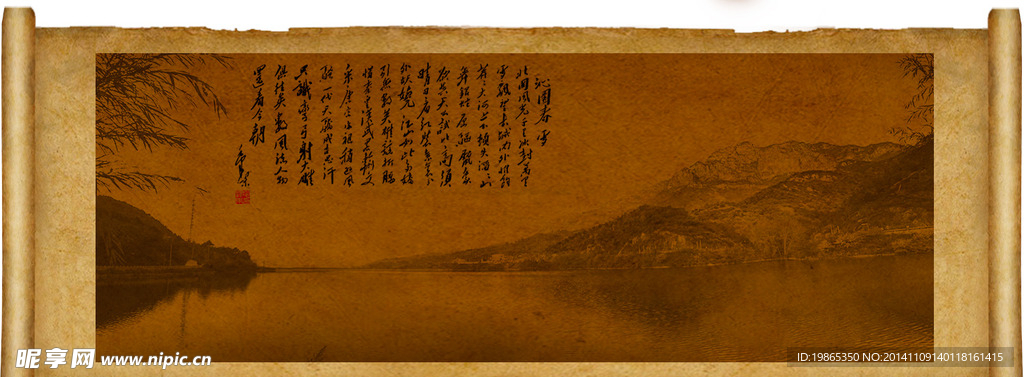 沁园春 雪
北国风光千里冰封万里
雪飘望长城内外惟余
莽莽大河上下顿失滔滔山
舞银蛇原驰蜡象
欲与天公试比高须
晴日看红装素裹
分外妖娆江山如此多娇
引无数英雄竞折腰
惜秦皇汉武略输文
采唐宗宋祖稍逊风
骚一代天骄成吉思汗
只识弯弓射大雕
俱往矣数风流人物
还看今朝
毛泽东
昵享网 www.nipic.cn
ID:19865350 NO:20141109140118161415